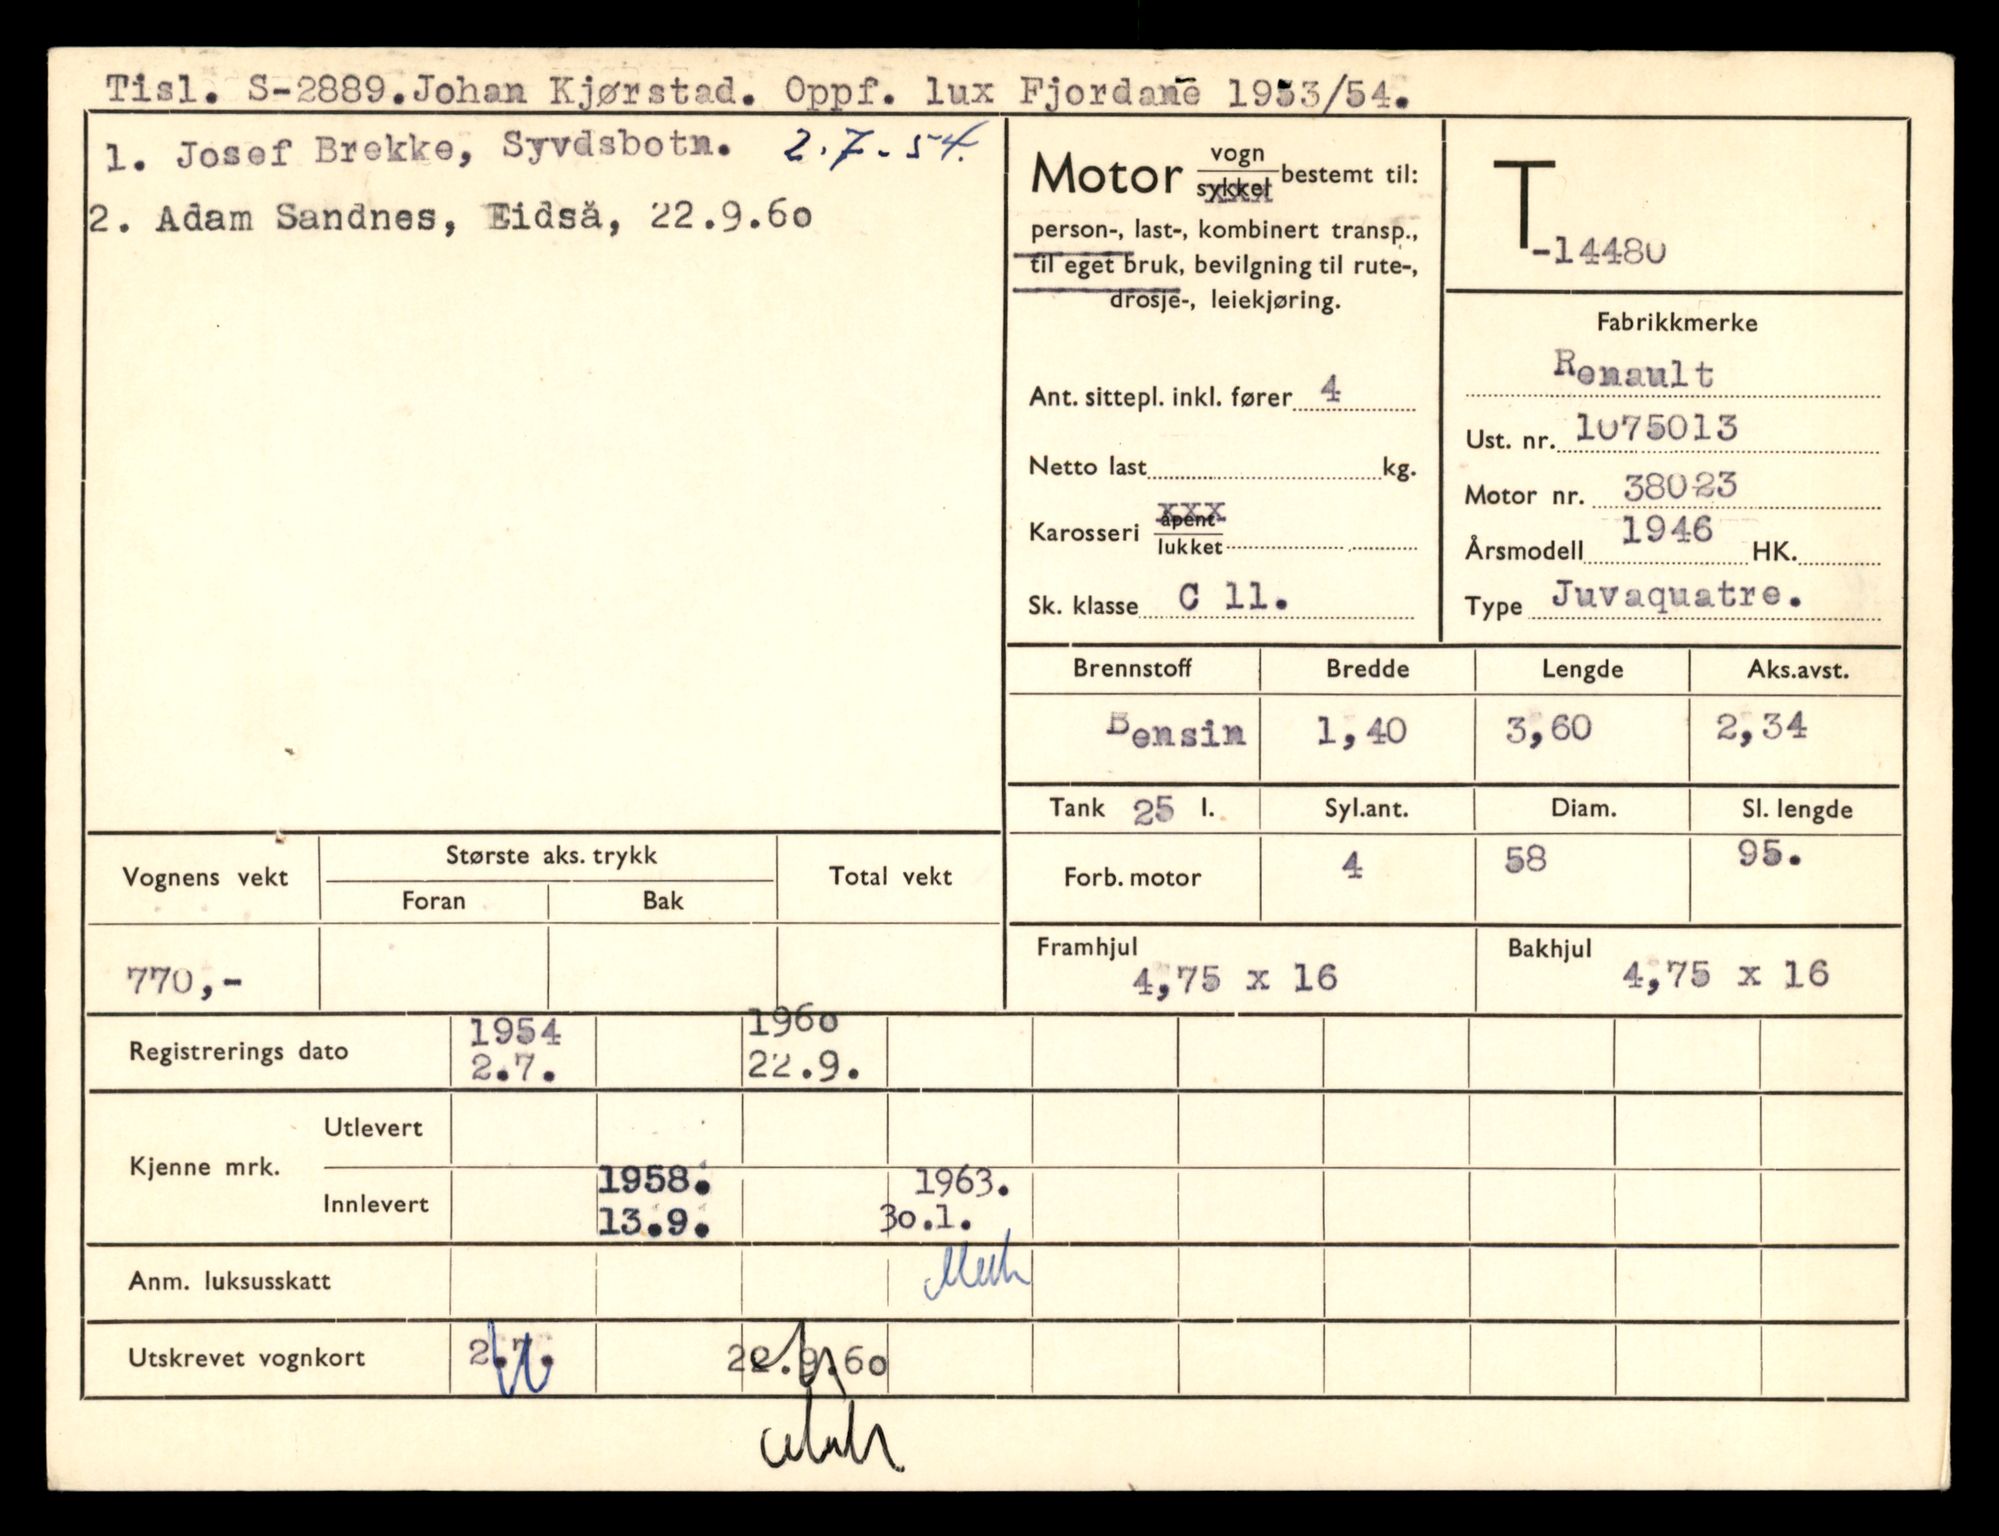 Tisl. S-2889. Johan Kjørstad. Oppf. lux Fjordane 1953/54.
1. Josef Brekke, Syvdsbotn. 2.7-54.
2. Adam Sandnes, Eidså, 22.9.60
Motor vogn
sykkel bestemt til:
person-, last-, kombinert transp.,
til eget bruk, bevilgning til rute-,
drosje-, leiekjøring.
Ant. sittepl. inkl. fører 4
Netto last kg.
Karosseri xxx
åpent
lukket
Sk. klasse C 11.
T
-14480
Fabrikkmerke
Renault
Ust. nr. 1075013
Motor nr. 38023
Årsmodell 1946 HK.
Type Juvaquatre.
Brennstoff Bredde Lengde Aks.avst.
Bensin 1,40 3,60 2,34
Tank 25 l. Syl.ant. Diam. Sl. lengde
Forb. motor 4 58 95.
Framhjul 4,75 x 16
Bakhjul 4,75 x 16
Vognens vekt Største aks. trykk Total vekt
Foran Bak
770,-
Registrerings dato 1954 1960
2.7. 22.9.
Kjenne mrk. Utlevert
Innlevert 1958. 1963.
13.9. 30.1.
Anm. luksusskatt
Utskrevet vognkort 2.7. 22.9.60